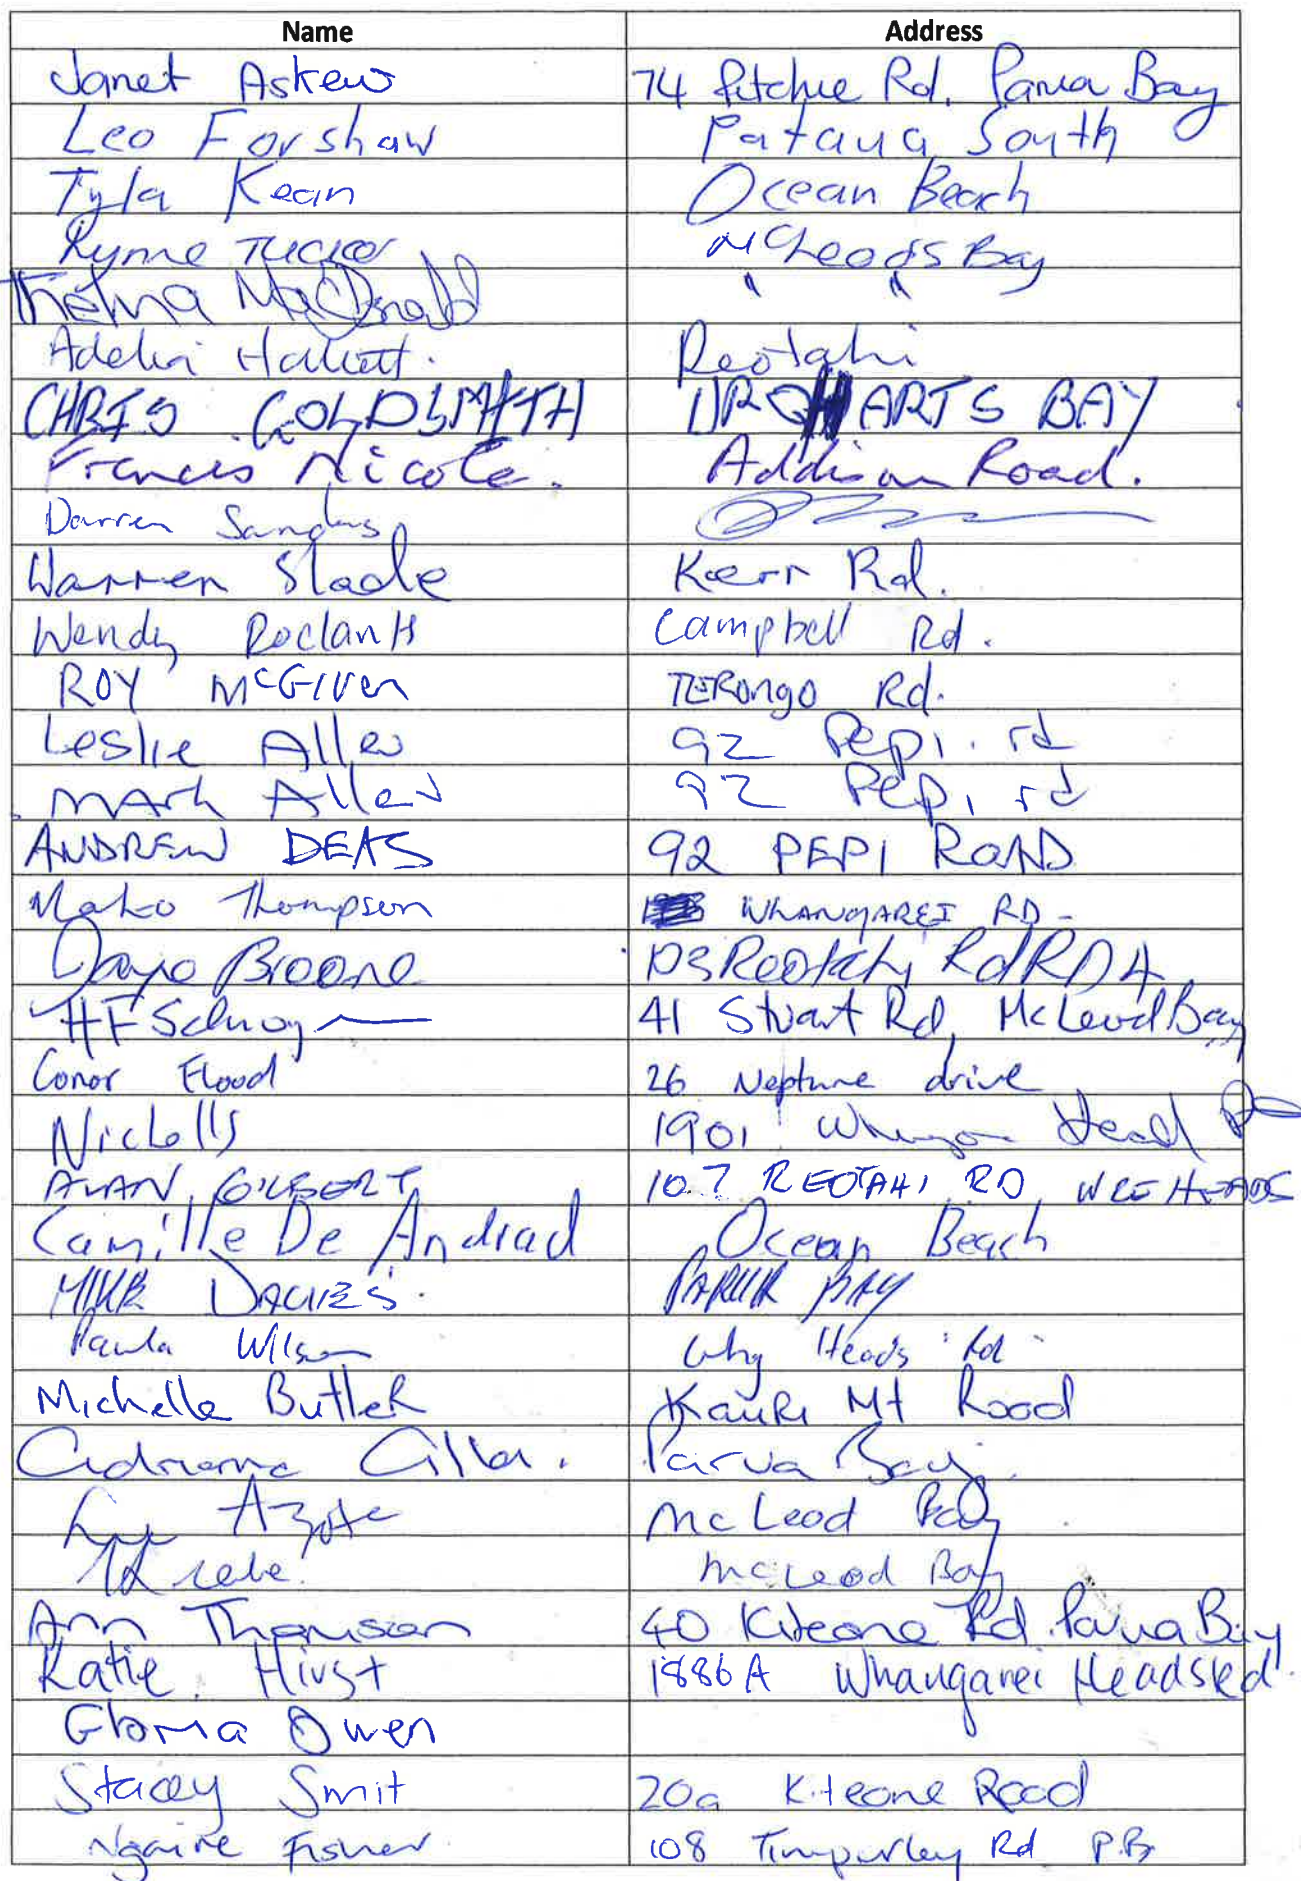 Name Address
Janet Askew 74 Ritchie Rd, Parua Bay
Leo Forshaw Pataua South
Tyla Kean Ocean Beach
Ryme Tucker McLeods Bay
Thelma MacDonald " "
Adelin Reotahi
CHRIS GOLDSMITH URQHARTS BAY
Frances Nicole. Addison Road.
Darren Sanders
Warren Slade Kerr Rd.
Wendy Roelants Campbell Rd.
ROY McGiven TERongo Rd.
Leslie Allen 92 Pepi. rd
Mark Allen 92 Pepi rd
ANDREW DEAS 92 PEPI ROAD
Mako Thompson WHANGAREI RD -
Broone Reotahi Rd RD 4
HF 41 Stuart Rd, McLeod Bay
Conor Flood 26 Neptune drive
Nicholls 1901 Head
ALAN GILBERT 107 REOTAHI RD WREI HEADS
Camille De Andrad Ocean Beach
MIKE DAVIES. PARUA BAY
Paula Wilson Whg Heads Rd
Michelle Butler Kauri Mt Road
Parua Bay.
McLeod Bay
McLeod Bay
Ann Thomson 40 Kiteone Rd Parua Bay
Katie Hirst 1886A Whangarei Heads Rd.
Gloria Owen
Stacey Smit 20a Kiteone Road
Ngaire Fisher 108 Timperley Rd P.B